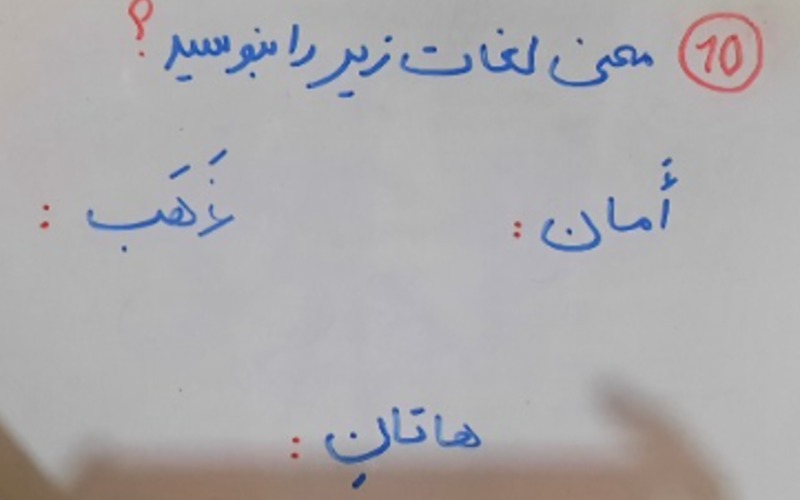 10 معنی لغات زیر را بنویسید ؟
أمان :
ذَهَب :
هاتانِ :